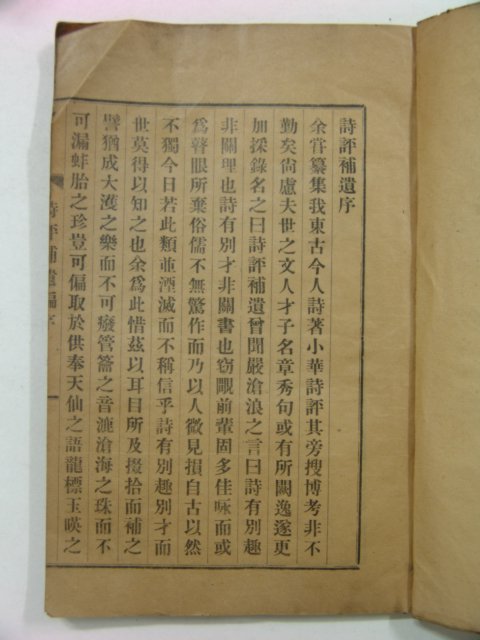 詩評補遺序
余甞纂集我東古今人詩著小華詩評其旁搜博考非不
勤矣尙慮夫世之文人才子名章秀句或有所闕逸遂更
加採錄名之曰詩評補遺曾聞嚴滄浪之言曰詩有別趣
非關理也詩有別才非關書也窃覸前輩固多佳咏而或
爲聾眼所棄俗儒不無驚作而乃以人微見損自古以然
不獨今日若此類並湮滅而不稱信乎詩有別趣別才而
世莫得以知之也余爲此惜玆以耳目所及掇拾而補之
譬猶成大濩之樂而不可癈管籥之音漉滄海之珠而不
可漏蚌胎之珍豈可偏取於供奉天仙之語龍標玉暎之
詩評補遺編序